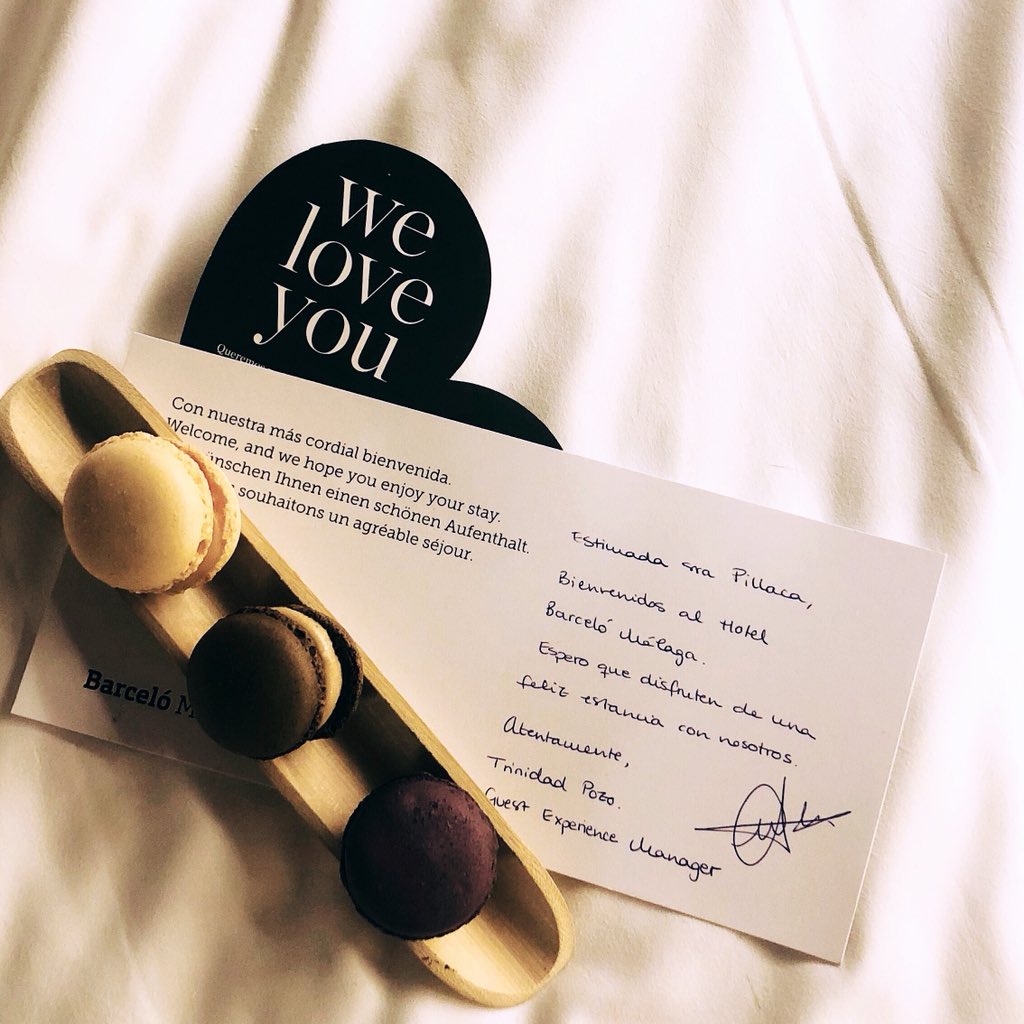 we
love
you
Con nuestra más cordial bienvenida.
Welcome, and we hope you enjoy your stay.
Ihnen einen schönen Aufenthalt.
souhaitons un agréable séjour.
Barceló
Estimada sra Pillaca,
Bienvenidos al Hotel
Barceló Málaga.
Espero que disfruten de una
feliz estancia con nosotros.
Atentamente,
Trinidad Pozo.
Guest Experience Manager